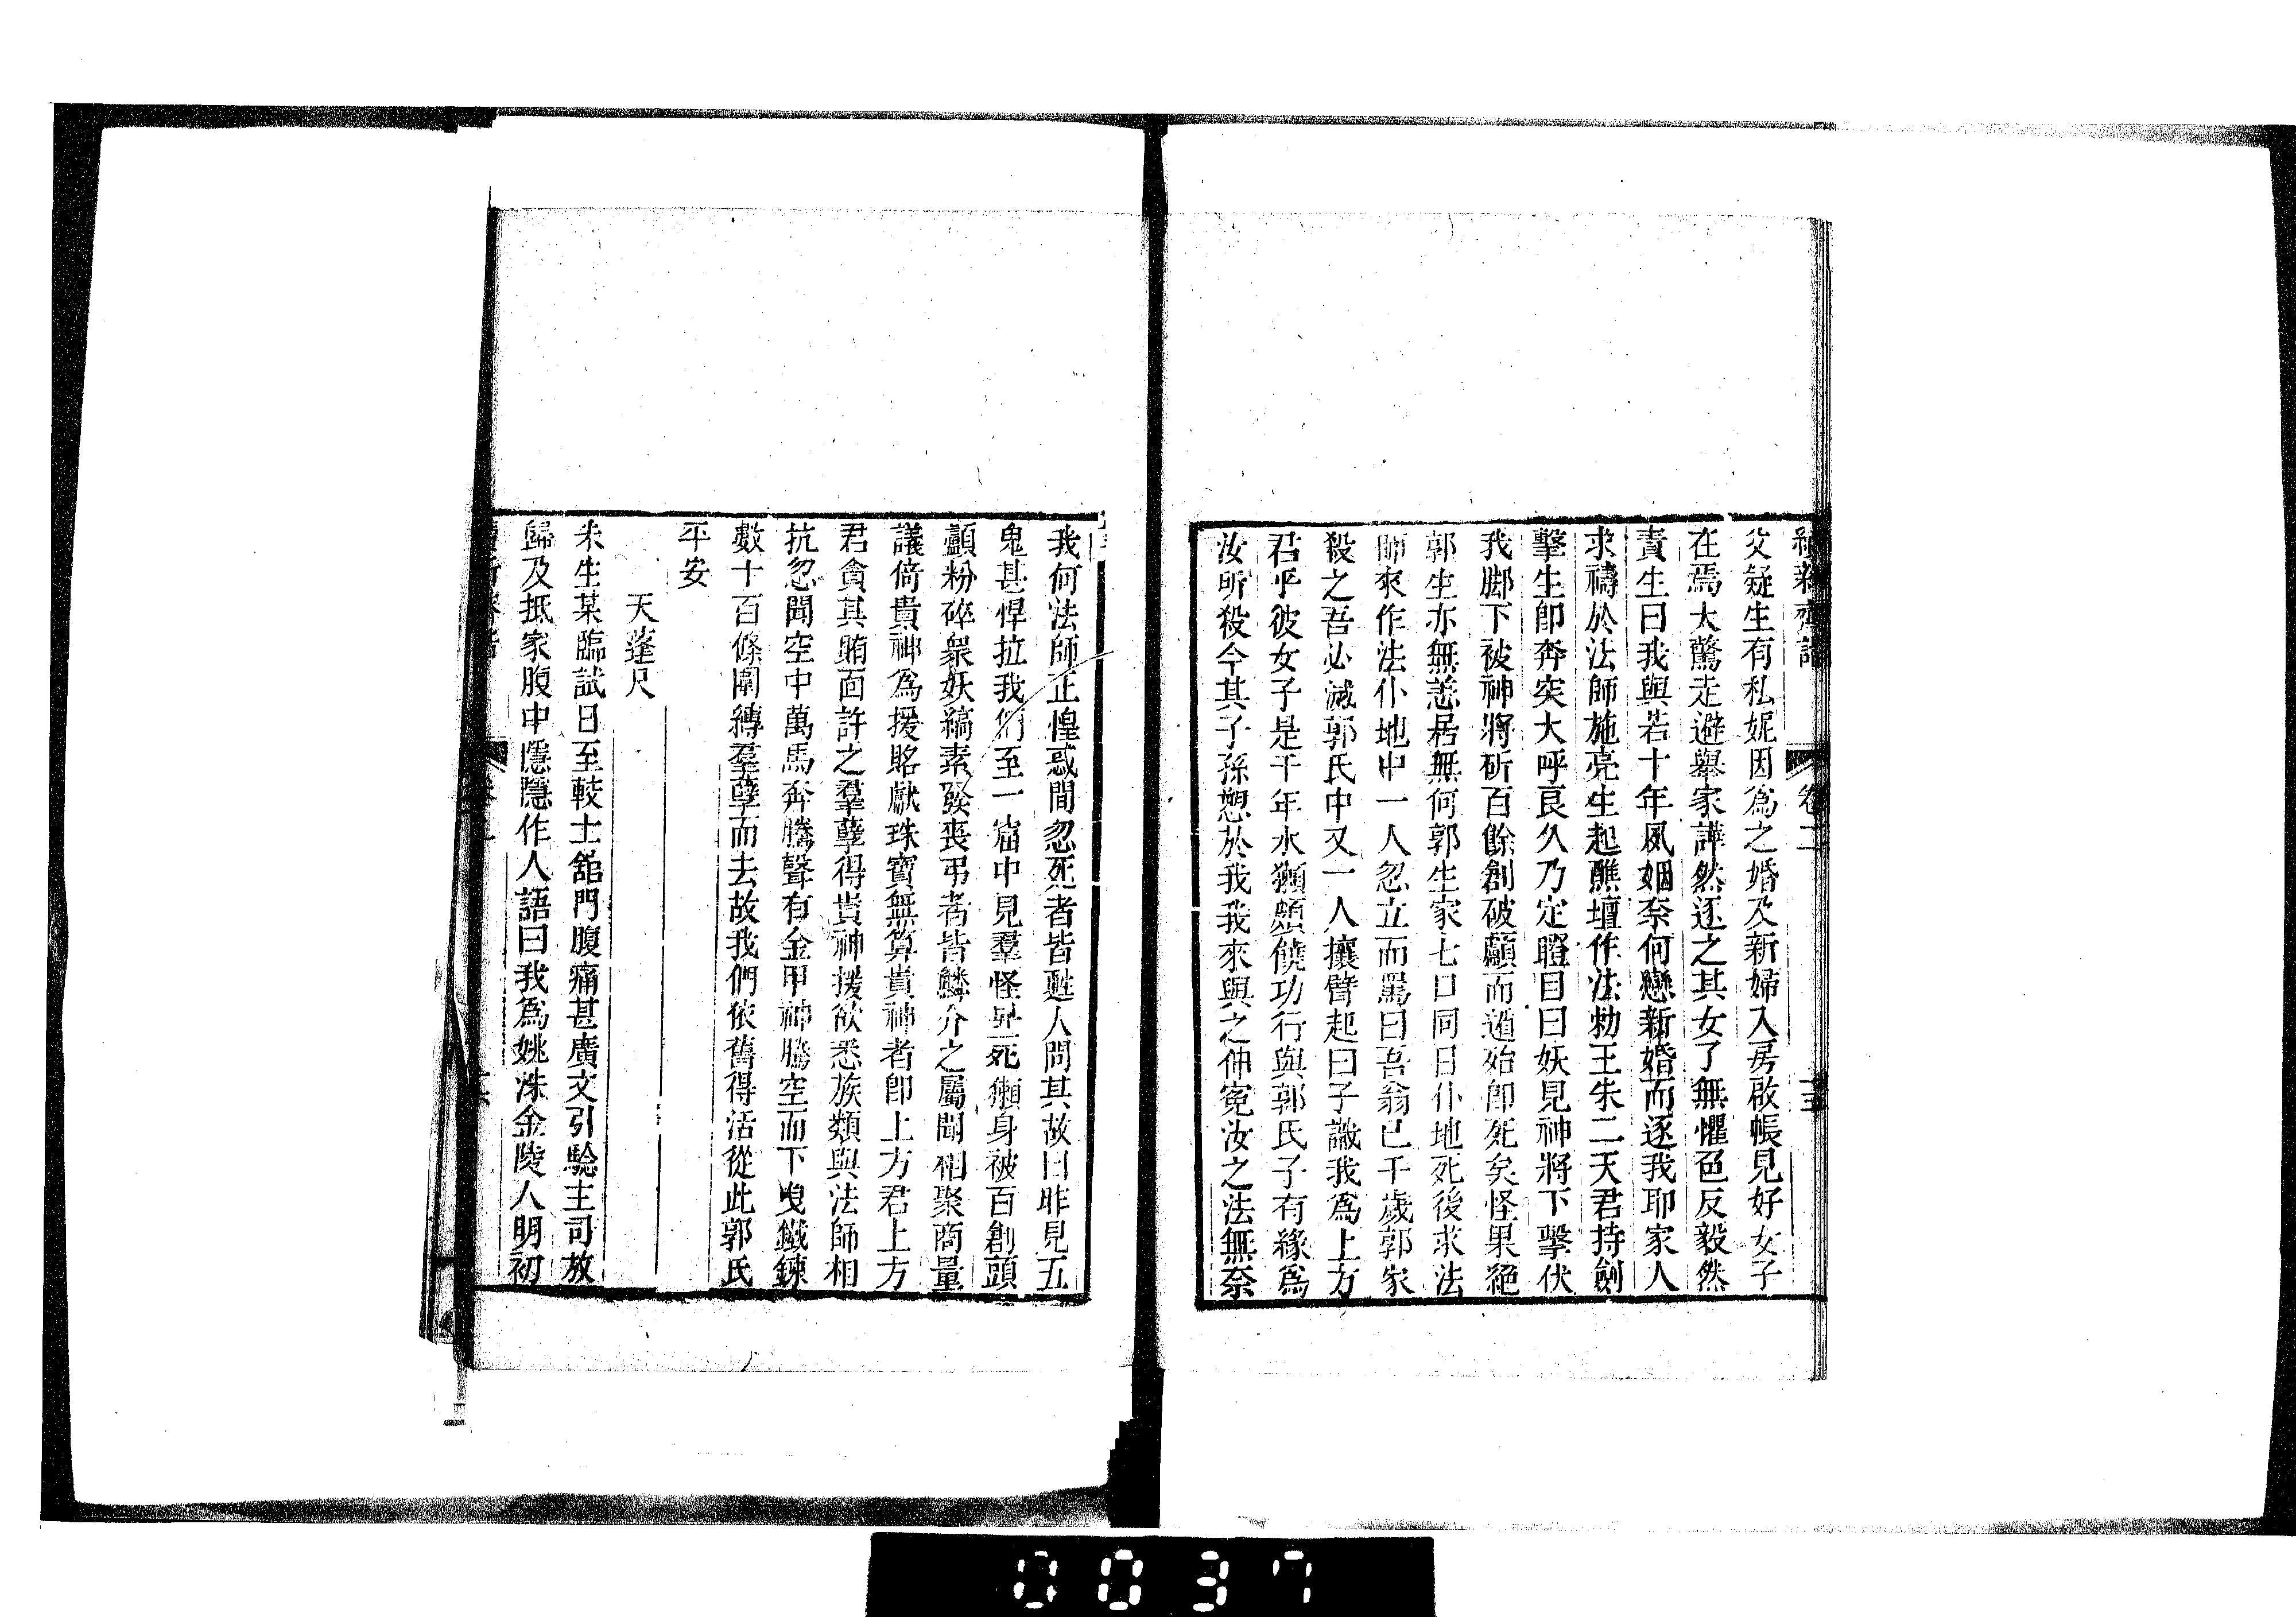 續新齊諧 卷二
父疑生有私妮因爲之婚及新婦入房啟帳見好女子
在焉大驚走避舉家譁然逐之其女了無懼色反毅然
責生曰我與若十年夙姻奈何戀新婚而逐我耶家人
求禱於法師施亮生起醮壇作法勑王朱二天君持劍
擊生卽奔突大呼良久乃定瞪目曰妖見神將下擊伏
我脚下被神將斫百餘創破顱而遁殆卽死矣怪果絕
郭生亦無恙居無何郭生家七口同日仆地死後求法
師來作法仆地中一人忽立而罵曰吾翁已千歲郭家
殺之吾必滅郭氏中又一人攘臂起曰子識我爲上方
君乎彼女子是千年水獺頗饒功行與郭氏子有緣爲
汝所殺今其子孫愬於我我來與之伸寃汝之法無奈
我何法師正惶惑間忽死者皆甦人問其故曰昨見五
鬼甚悍拉我們至一窟中見羣怪舁死獺身被百創頭
顱粉碎衆妖縞素發喪弔者皆鱗介之屬聞相聚商量
議倚貴神爲援賂獻珠寶無算貴神者卽上方君上方
君貪其賄面許之羣孽得貴神援欲悉族類與法師相
抗忽聞空中萬馬奔騰聲有金甲神騰空而下曳鐵鍊
數十百條圍縛羣孽而去故我們依舊得活從此郭氏
平安
天蓬尺
朱生某臨試日至較士舘門腹痛甚廣文引驗主司放
歸及抵家腹中隱隱作人語曰我爲姚洙金陵人明初
0037